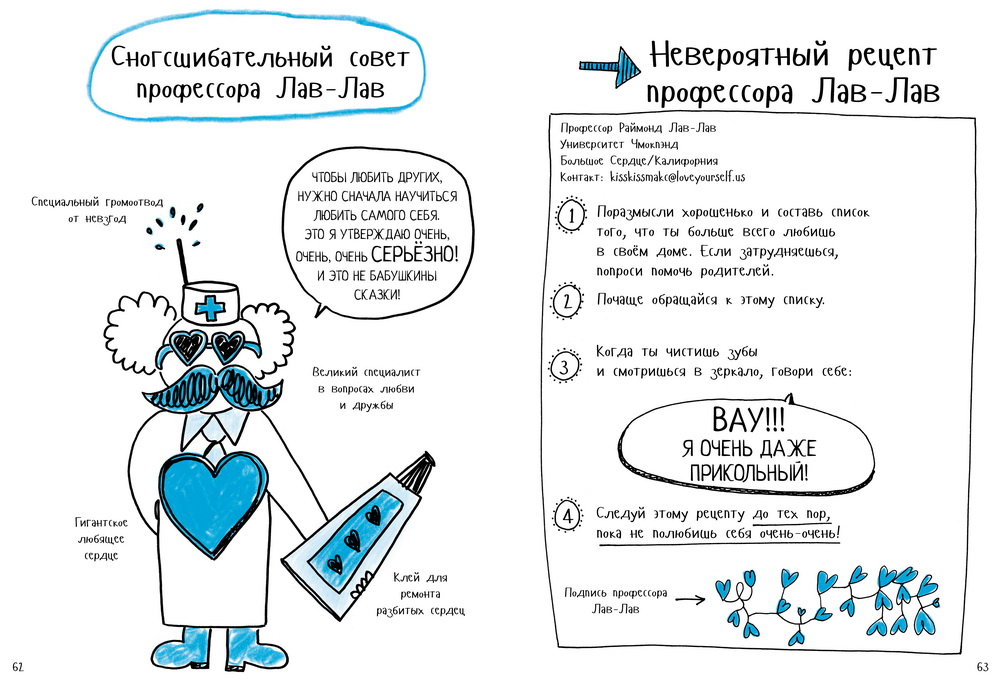 Сногсшибательный совет
профессора Лав-Лав
ЧТОБЫ ЛЮБИТЬ ДРУГИХ,
НУЖНО СНАЧАЛА НАУЧИТЬСЯ
ЛЮБИТЬ САМОГО СЕБЯ.
ЭТО Я УТВЕРЖДАЮ ОЧЕНЬ,
ОЧЕНЬ, ОЧЕНЬ СЕРЬЁЗНО!
И ЭТО НЕ БАБУШКИНЫ
СКАЗКИ!
Специальный громоотвод
от невзгод
Великий специалист
в вопросах любви
и дружбы
Гигантское
любящее
сердце
Клей для
ремонта
разбитых сердец
62
Невероятный рецепт
профессора Лав-Лав
Профессор Раймонд Лав-Лав
Университет Чмокпэнд
Большое Сердце/Калифорния
Контакт: kisskissmakc@loveyourself.us
1 Поразмысли хорошенько и составь список
того, что ты больше всего любишь
в своём доме. Если затрудняешься,
попроси помочь родителей.
2 Почаще обращайся к этому списку.
3 Когда ты чистишь зубы
и смотришься в зеркало, говори себе:
ВАУ!!!
Я ОЧЕНЬ ДАЖЕ
ПРИКОЛЬНЫЙ!
4 Следуй этому рецепту до тех пор,
пока не полюбишь себя очень-очень!
Подпись профессора
Лав-Лав
63